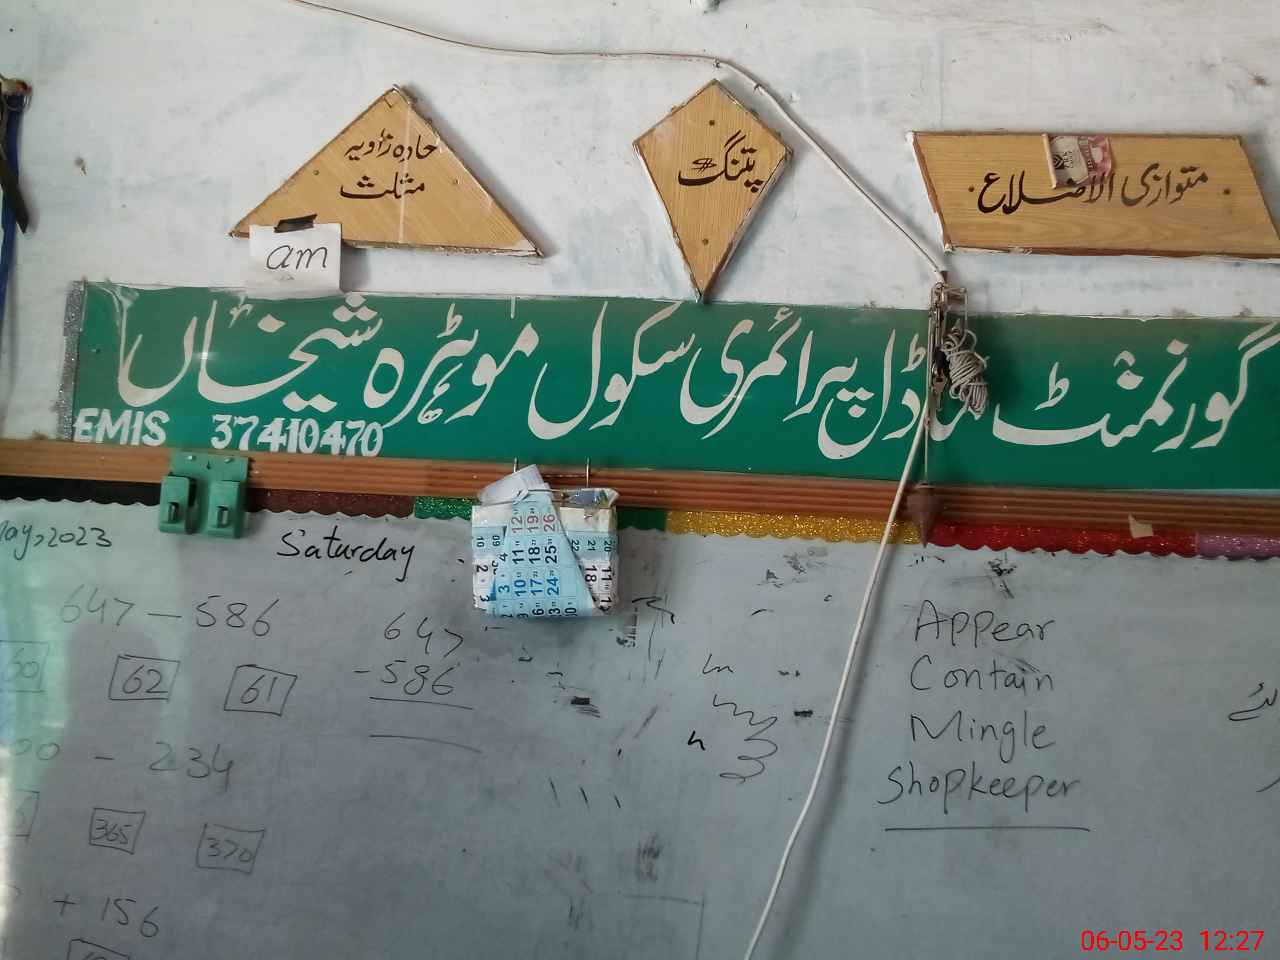 حادہ زاویہ
مثلث
پتنگ
متوازی الاضلاع
am
گورنمنٹ ماڈل پرائمری سکول موہڑہ شیخاں
EMIS 37410470
May, 2023
Saturday
647 - 586
60 62 61
647
-586
00 - 234
365 370
+ 156
Appear
Contain
Mingle
Shopkeeper
06-05-23 12:27